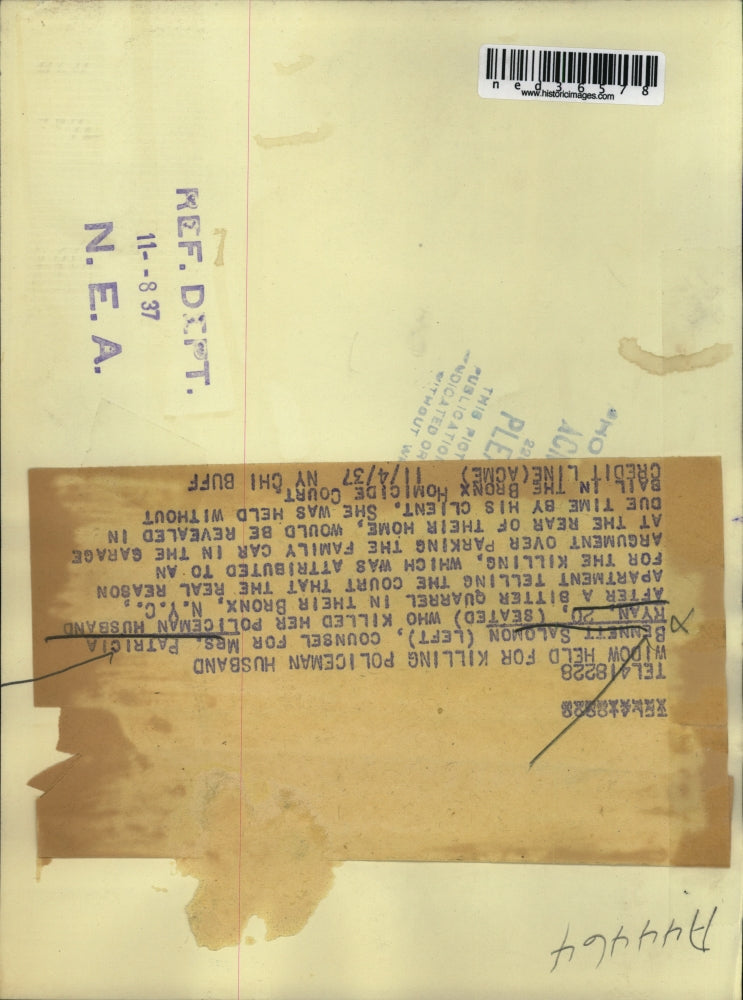 ned36578
www.historicimages.com
REF. DEPT.
11--8 37
N. E. A.
THIS PICT
PUBLICATION
NDICATED OR
WITHOUT
22
PLE
AC
TEL418228
WIDOW HELD FOR KILLING POLICEMAN HUSBAND
BENNETT SALOMON (LEFT), COUNSEL FOR MRS. PATRICIA
RYAN, 20, (SEATED) WHO KILLED HER POLICEMAN HUSBAND
AFTER A BITTER QUARREL IN THEIR BRONX, N.Y.C.,
APARTMENT TELLING THE COURT THAT THE REAL REASON
FOR THE KILLING, WHICH WAS ATTRIBUTED TO AN
ARGUMENT OVER PARKING THE FAMILY CAR IN THE GARAGE
AT THE REAR OF THEIR HOME, WOULD BE REVEALED IN
DUE TIME BY HIS CLIENT. SHE WAS HELD WITHOUT
BAIL IN THE BRONX HOMICIDE COURT.
CREDIT LINE(ACME) 11/4/37 NY CHI BUFF
A44464